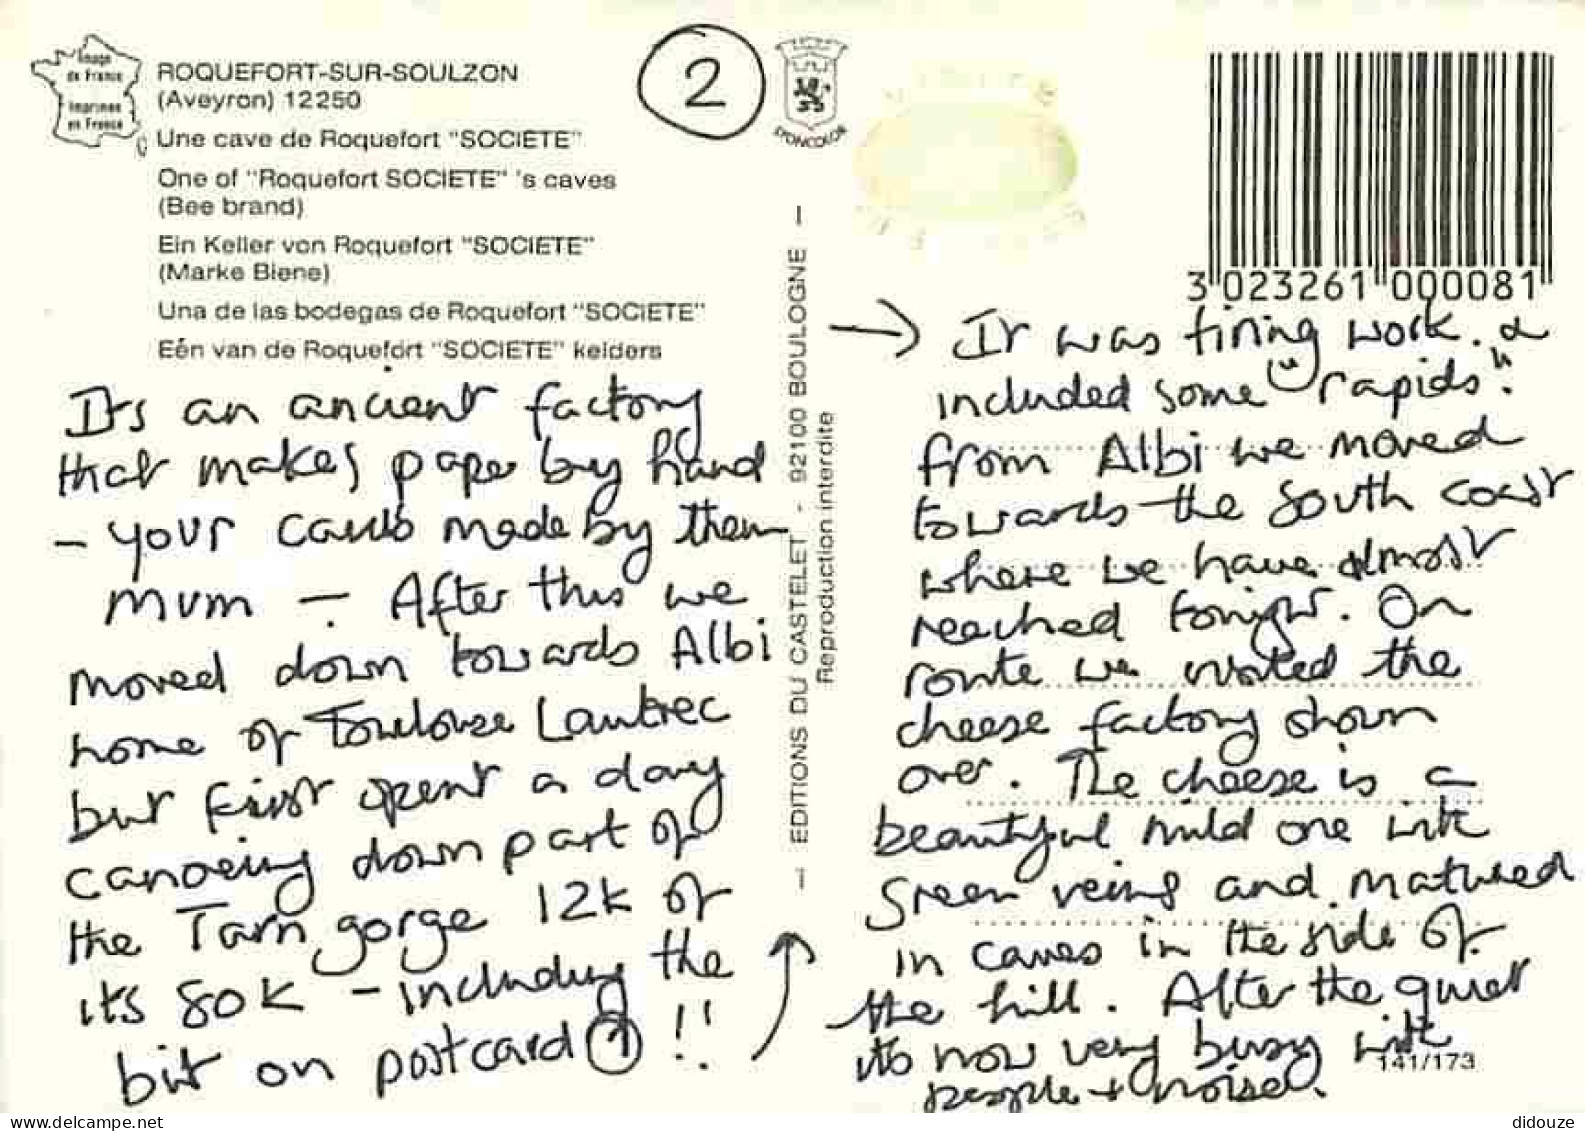 Image
de France
Imprimee
en France
ROQUEFORT-SUR-SOULZON
(Aveyron) 12250
Une cave de Roquefort "SOCIETE"
One of "Roquefort SOCIETE" 's caves
(Bee brand)
Ein Keller von Roquefort "SOCIETE"
(Marke Biene)
Una de las bodegas de Roquefort "SOCIETE"
Eén van de Roquefort "SOCIETE" kelders
2
LYONCOLOR
Its an ancient factory
that makes paper by hand
- your cards made by them
mum - After this we
moved down towards Albi
home of Toulouse Lautrec
but first spent a day
canoeing down part of
the Tarn gorge 12k of
its 80k - including the
bit on postcard 1 !!
EDITIONS DU CASTELET - 92100 BOULOGNE
Reproduction interdite
3 023261 000081
→ It was tiring work. &
included some "rapids".
from Albi we moved
towards the South coast
where we have almost
reached tonight. On
route we visited the
cheese factory shown
over. The cheese is a
beautiful mild one with
green veins and matured
in caves in the side of
the hill. After the quiet
its now very busy with
people + noise.
141/173
didouze